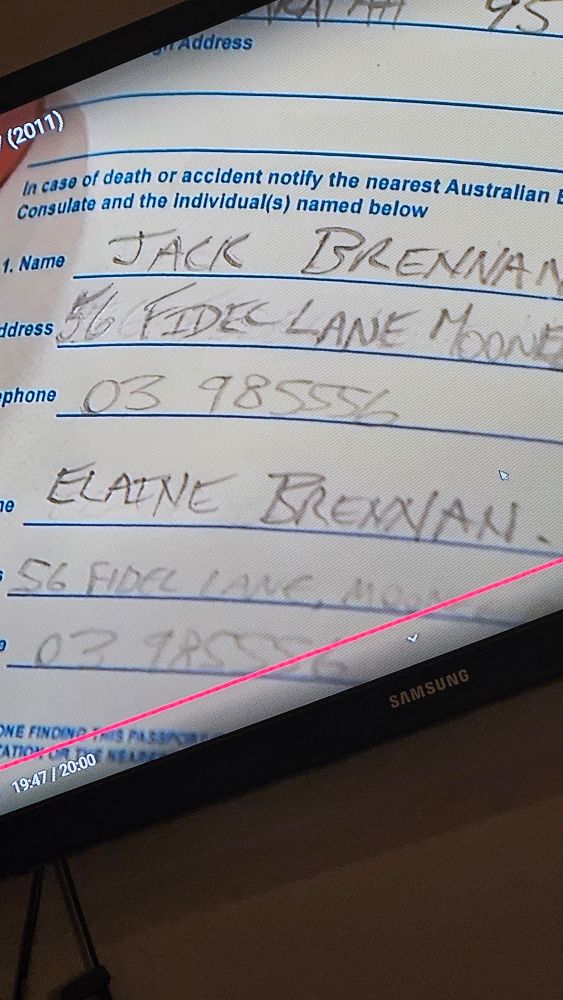 95
Address
(2011)
In case of death or accident notify the nearest Australian
Consulate and the individual(s) named below
1. Name JACK BRENNAN
ddress 56 FIDEL LANE MOONE
phone 03 985556
ne ELAINE BRENNAN.
s 56 FIDEL LANE, MOO
03 985556
ONE FINDING THIS PASSPORT
19:47 / 20:00
SAMSUNG